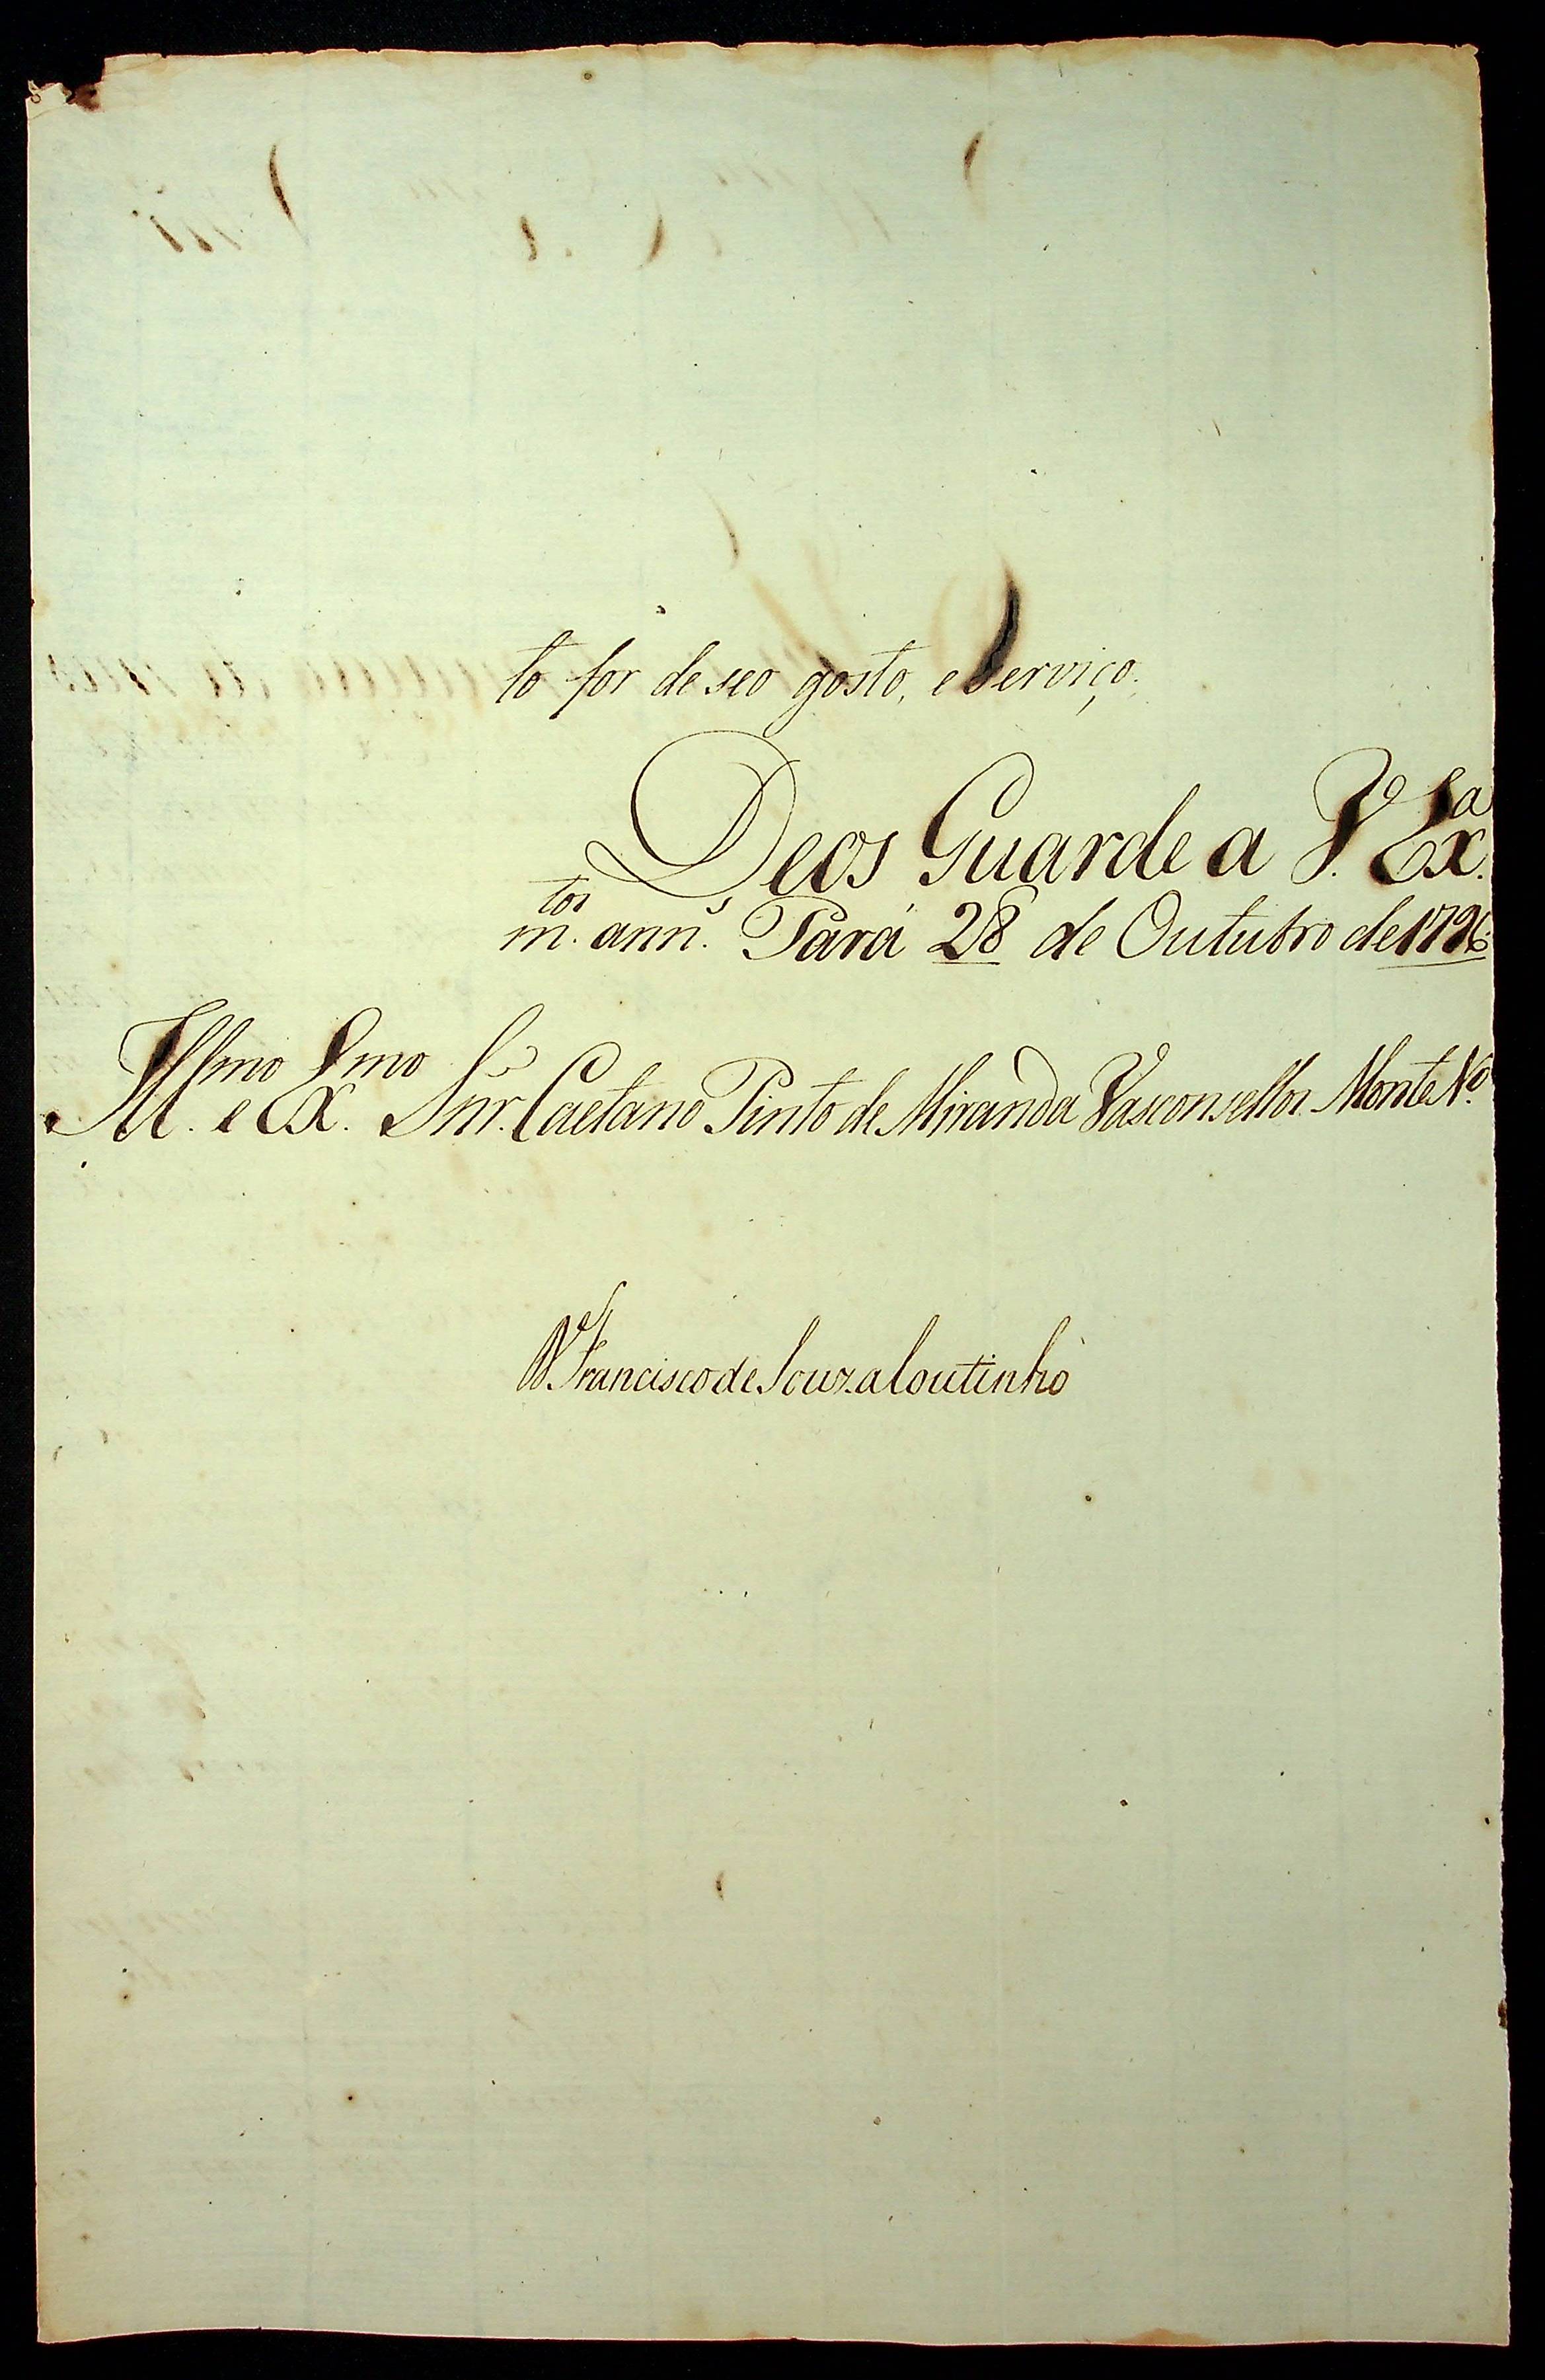 to for de seo gosto, e Serviço.
Deos Guarde a V. Ex.ª
m.tos ann.s Pará 28 de Outubro de 1796.
Ill.mo e Ex.mo Snr. Caetano Pinto de Miranda Vasconsellos Monte N.º
D. Francisco de Souza Coutinho